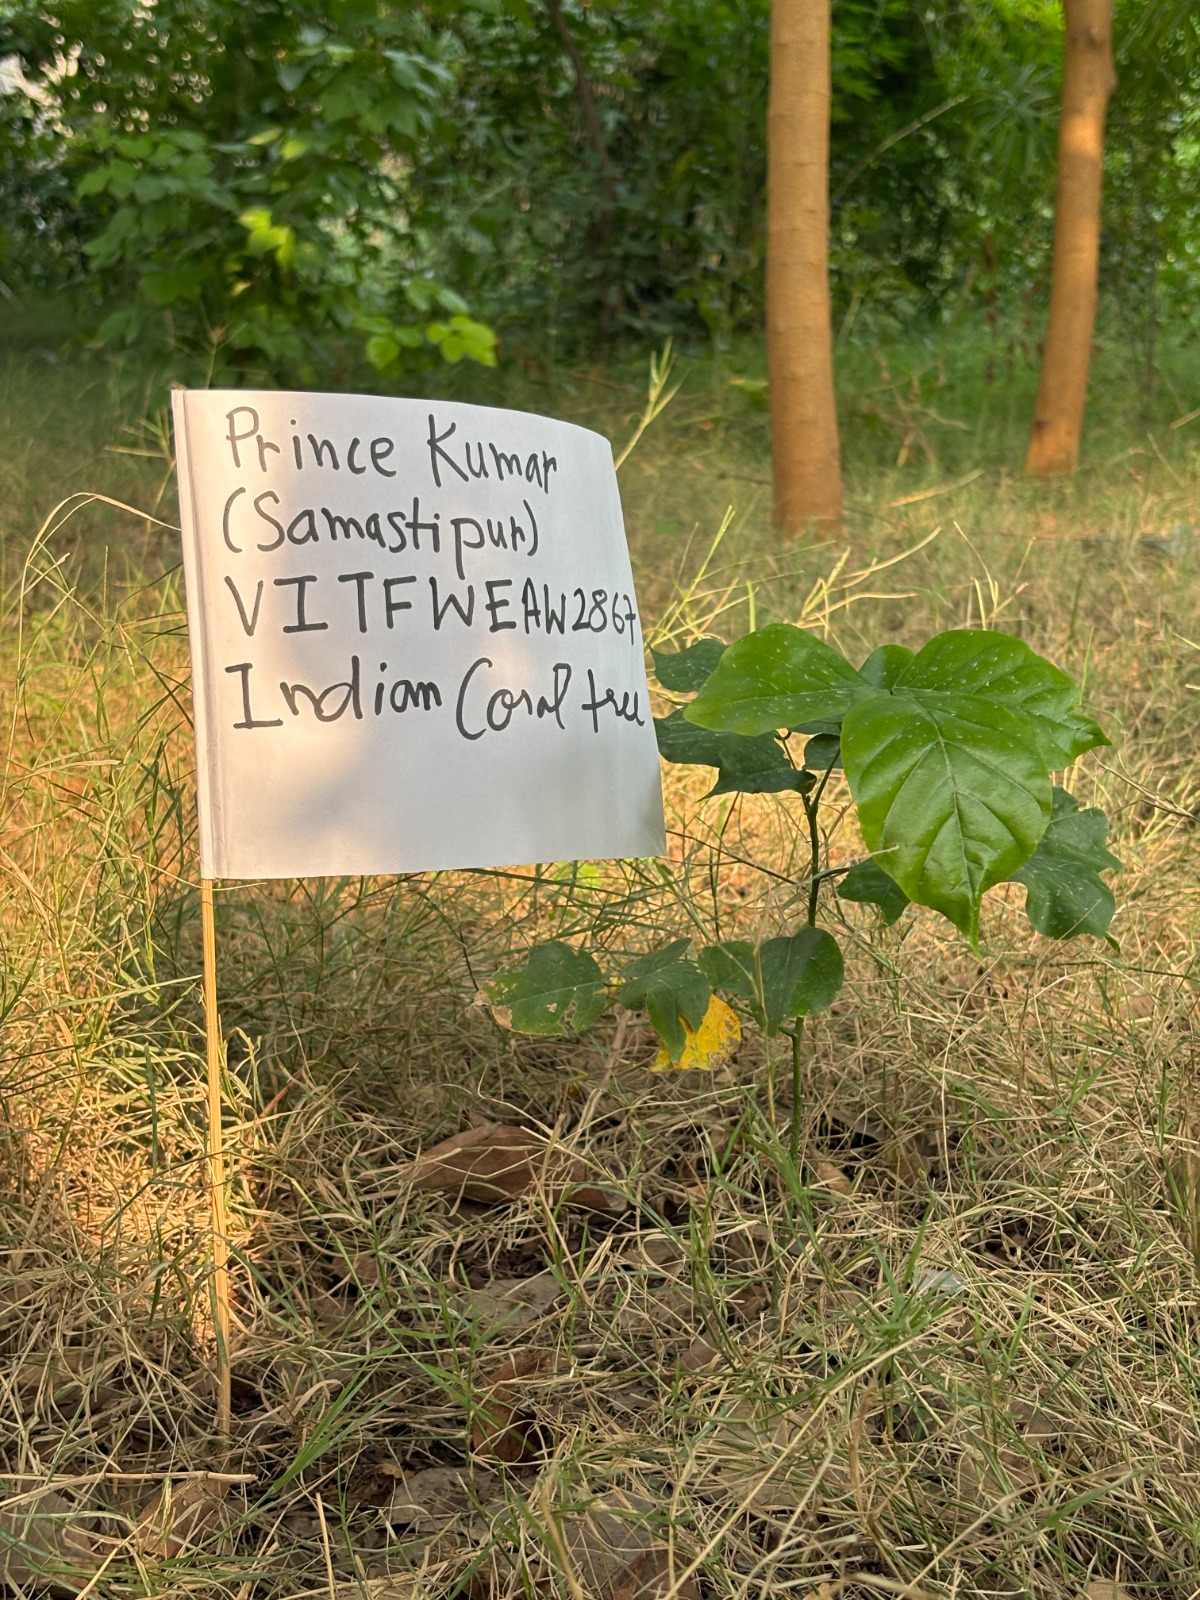 Prince Kumar
(Samastipur)
VITFWEAW2867
Indian Coral tree